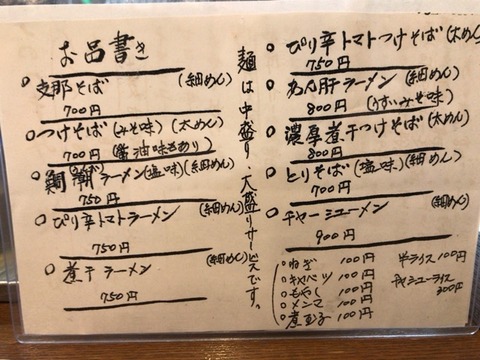 お品書き
○支那そば (細めん)
700円
○つけそば(みそ味)(太めん)
700円(醤油味もあり)
○鯛潮ラーメン(塩味)(細めん)
750円
○ぴり辛トマトラーメン (細めん)
750円
○煮干ラーメン (細めん)
750円
麺は中盛り、大盛りサービスです。
○ぴり辛トマトつけそば(太めん)
750円
肝ラーメン (細めん)
800円 (うすいみそ味)
○濃厚煮干つけそば(太めん)
800円
○とりそば(塩味)(細めん)
700円
○チャーシューメン (細めん)
900円
○ねぎ 100円
○キャベツ 100円
○もやし 100円
○メンマ 100円
○煮玉子 100円
半ライス 100円
チャーシューライス
300円